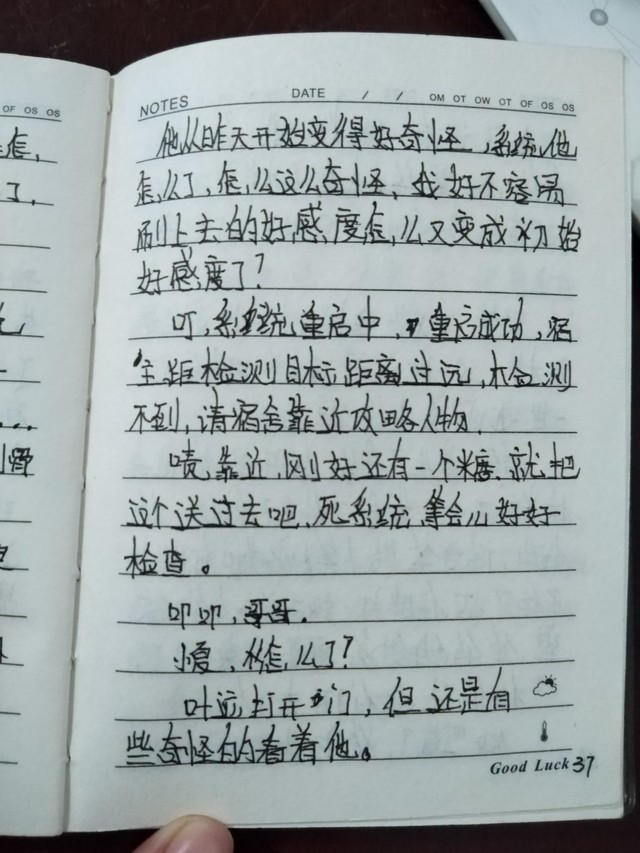 NOTES DATE / / OM OT OW OT OF OS OS
OF OS OS
他从昨天开始变得好奇怪,系统,他
怎么了,怎么这么奇怪,我好不容易
刷上去的好感度怎么又变成初始
好感度了?
叮,系统重启中,重启成功,宿
主距检测目标距离过远,检测
不到,请宿舍靠近攻略人物.
啧,靠近,刚好还有一个糖,就把
这个送过去吧,死系统,等会儿好好
检查。
叩叩,哥哥.
小夏,怎么了?
叶远打开门,但还是有
些奇怪的看着他。
Good Luck 37